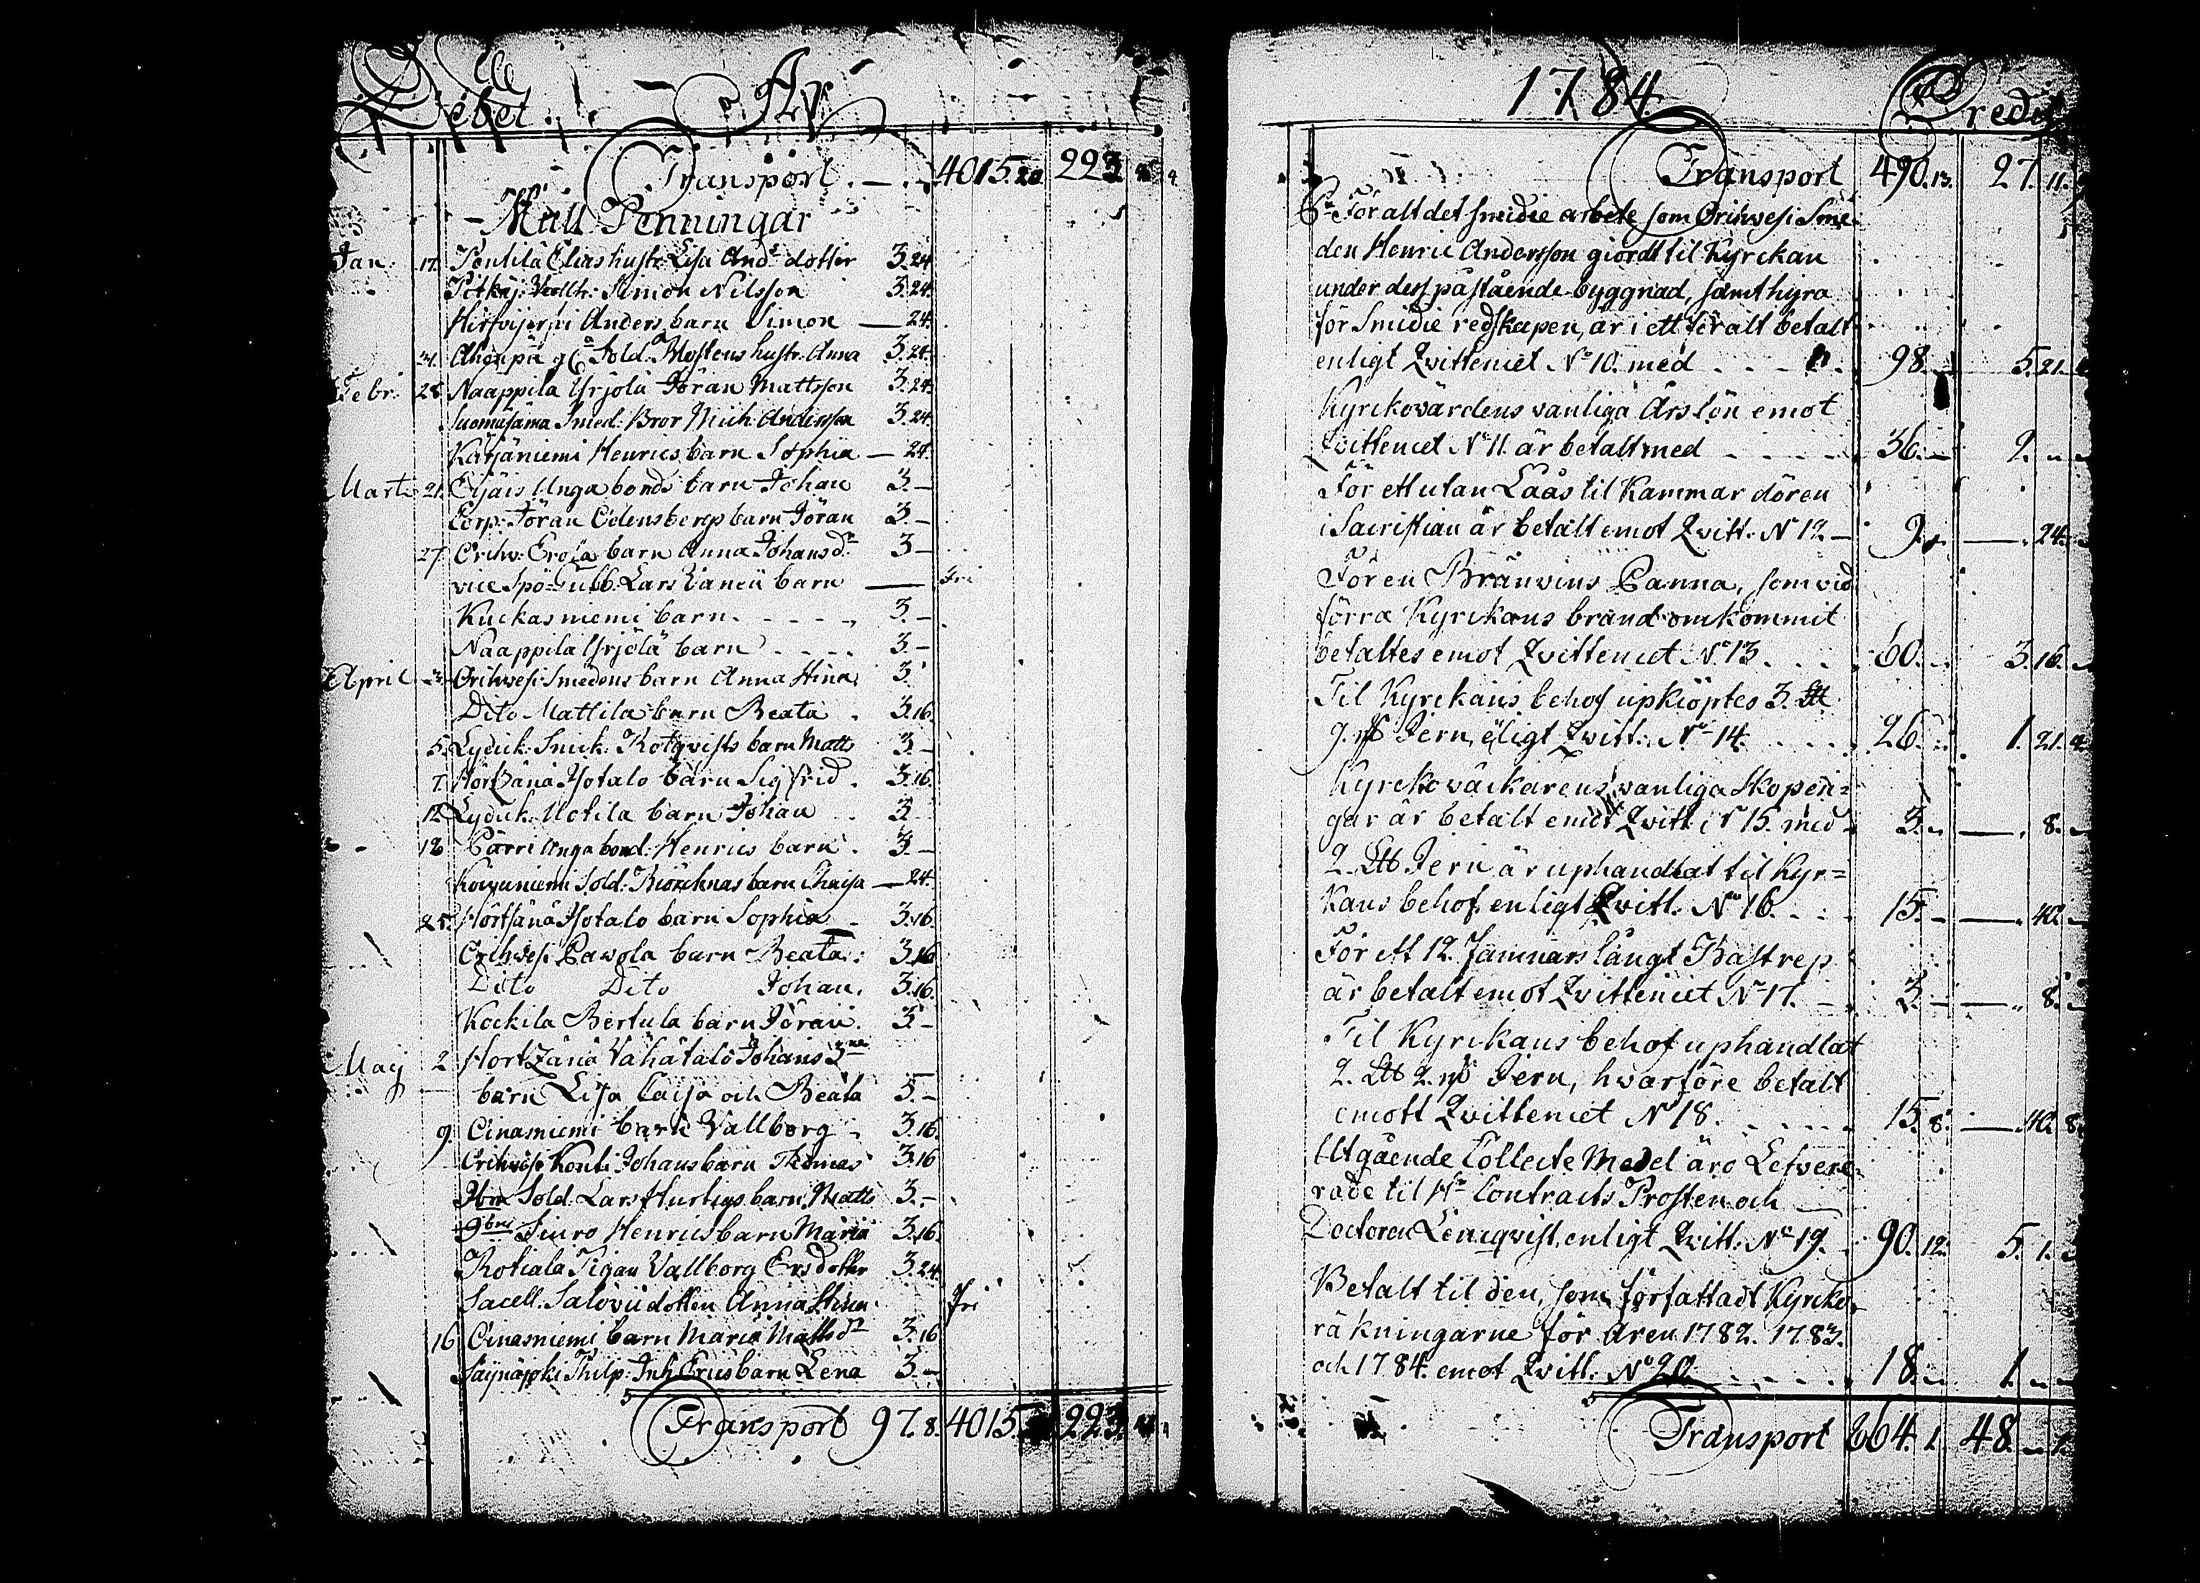 Debet. År
Transport. 4015. 20 223
Mull Penningar
Jan. 17. Pentilä Elias hustr. Lisa And: dotter 3.24
Simon Nilsson 3.24.
Hirsijerfvi Anders barn Simon — 24.
31. Sold. Mostens hustr. Anna 3.24.
Febr. 28. Naappila Yrjölä Jöran Mattsson 3.24.
Smed. Bror Mich. Andersson 3.24.
Karjaniemi Henrics barn Sophia — 24.
Marti 21. Unga bonds barn Johan 3.—
Corp. Jöran Edensbergs barn Jöran 3.—
27. Orihw: Erola barn Anna Johansdr 3—
vice barn — Fri
Kuckasniemi barn. 3.—
Naappila Yrjölä barn 3.—
April Orihwesi Smedens barn Anna Stina 3
Dito Mattila barn Beata. 3.16.
5. Eydick. Snick. Rotqvists barn Matts 3—
7. Hörtzänä Isotalo barn Sigfrid. 3.16.
12. Eydick. Uotila barn Johan 3
18. Pärri Unga bond. Henrics barn. 3.—
Koivuniemi Sold. barn Caisa — 24.
25. Hörtsänä Isotalo barn Sophia 3.16.
Orihvesi Pawola barn Beata. 3.16
Dito Dito Johan. 3.16.
Kockila Bertula barn Jöran. 3.—
Maij 2 Hortzänä Vähätalo Johans 3ne
barn Lisa Caisa och Beata 3.—
9. Onasniemi barn Vallborg 3.16.
Orihvesi Konti Johans barn Thomas 3.16
Sold. Lars Hurtigs barn Matts 3.—
Siuro Henrics barn Maria 3.16.
Rotiala Pigan Vallborg Ersdotter 3.24
Sacell. Salovii dotter Anna Stina Fri
16 Onasniemi barn Maria Mattsdr 3.16
Inh. Erics barn Lena 3.—
Transport 97.8. 4015. 223.
1784. Credit
Transport 490.13. 27. 11.
För alt det smidie arbete som Orihwesi Sme-
den Henric Andersson giordt til Kyrckan
under dess påstående byggnad, samt hyra
för Smidie redskapen, är i ett för alt betalt
enligt Qvittencet No 10. med 98. 5.21.
Kyrckovärdens vanliga Årslön emot
Qvittencet No 11. är betalt med 36. 2.
För ett utan Laas til Kammar dören
i Sacristian är betalt emot Qvitt: No 12 — 9. — 24.
För en Bränvins Panna, som vid
förra Kyrckans brand omkommit
betaltes emot Qvittencet No 13. 60. 3.16.
Til Kyrckans behof upkiöptes 3. L℔
9. m℔ Jern, enligt Qvitt: No 14. 26. 1. 21.
Kyrckoväckarens vanliga Skopen=
gar är betalt emot Qvitt: No 15. med 3. — 8.
2. L℔ Jern är uphandlat til Kyr=
kans behof enligt Qvitt: No 16. 15. — 40.
För ett 12. famnars långt Bastrep
är betalt emot Qvittencet No 17. 3. — 8.
Til Kyrckans behof uphandlat
2. L℔ 2. m℔ Jern, hvarföre betalt
emott Qvittencet No 18. 15. 8. — 40. 8.
Utgående Collecte Medel äro Lefvere-
rade til Hr Contracts Prosten och
Doctoren Lencqvist, enligt Qvitt: No 19. 90. 12. 5. 1.
Betalt til den, som författadt Kyrko-
räkningarne för åren 1782. 1783.
och 1784. emot Qvitt: No 20. 18. 1.
Transport 864. 1. 48.